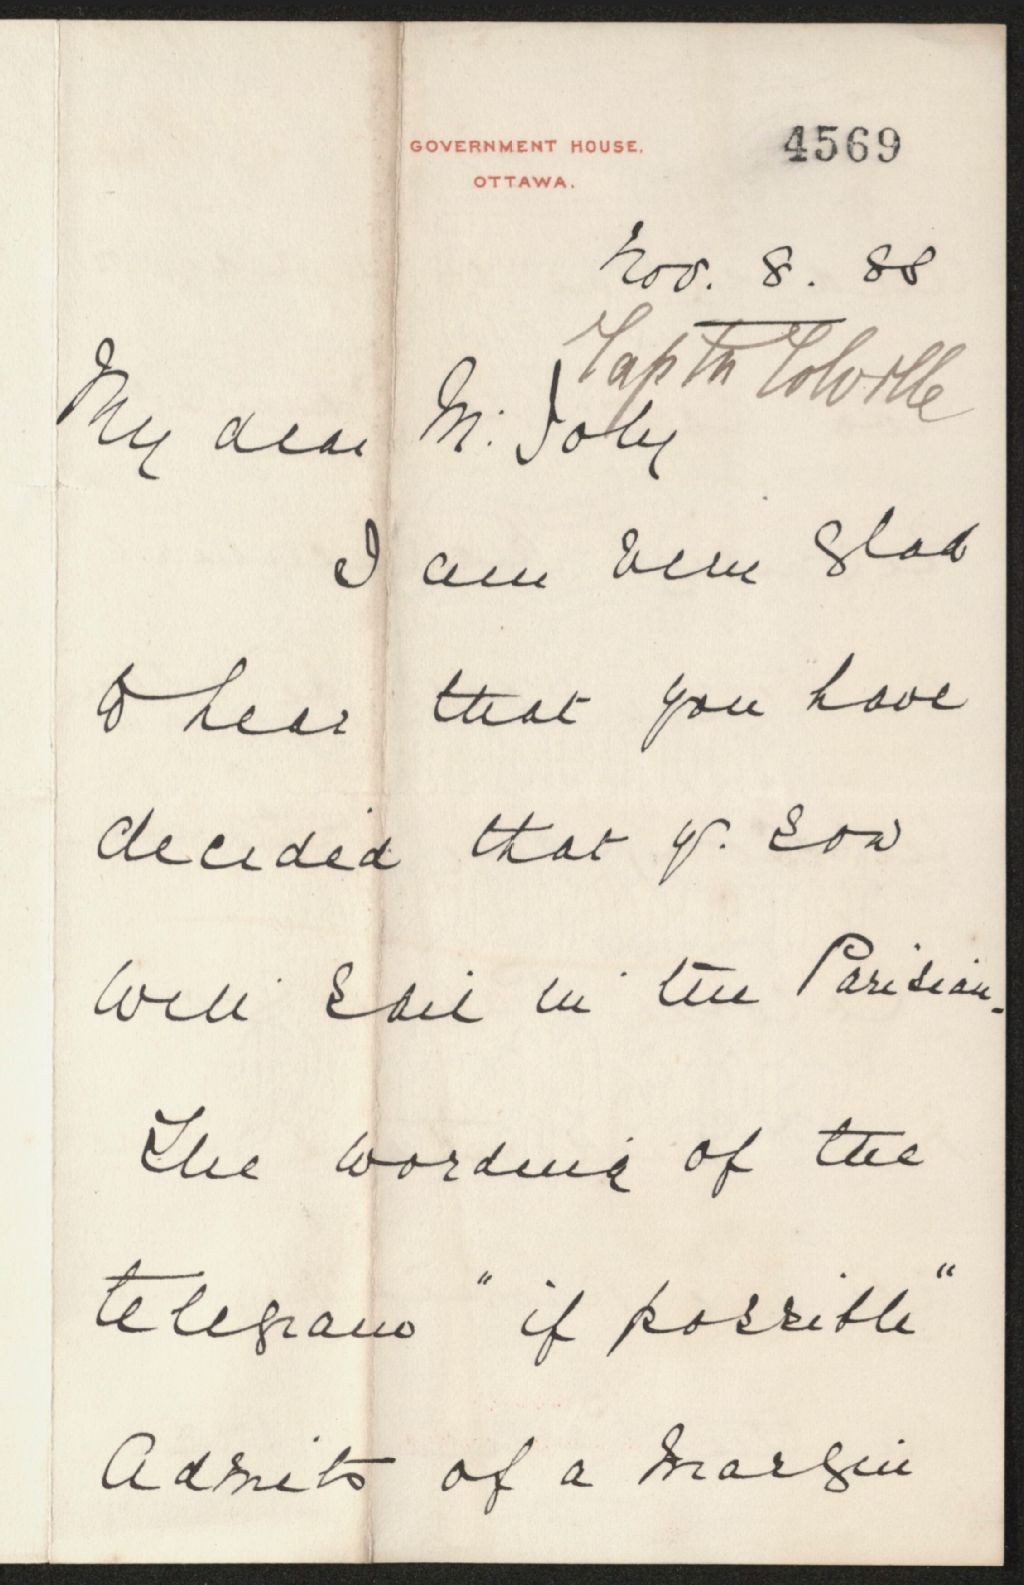 GOVERNMENT HOUSE.
OTTAWA.
4569
Nov. 8. 88
Captn Colville
My dear M. Joly
I am very glad
to hear that you have
decided that yr. son
will sail in the Parisian.
The wording of the
telegram "if possible"
admits of a margin